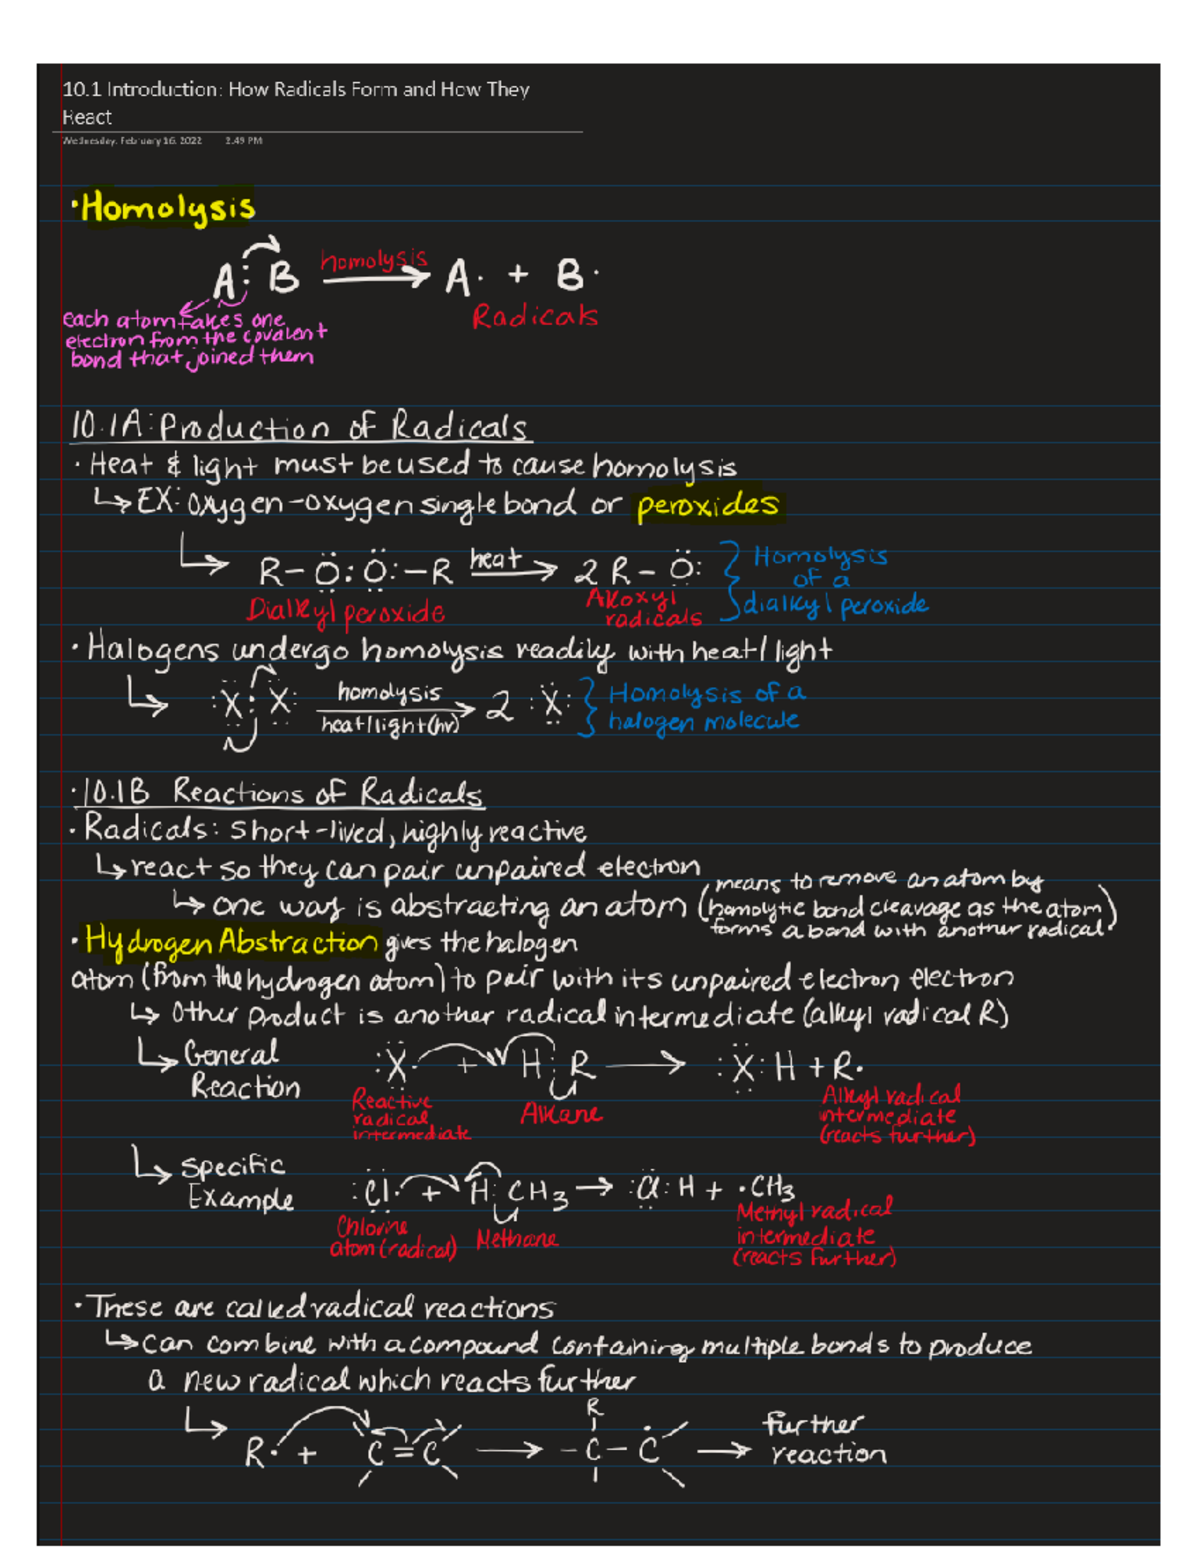 10.1 Introduction: How Radicals Form and How They
React
Wednesday, February 16, 2022 3:49 PM
· Homolysis
A : B homolysis → A· + B·
Radicals
each atom takes one
electron from the covalent
bond that joined them
10.1A: Production of Radicals
· Heat & light must be used to cause homolysis
↳ EX: Oxygen-oxygen single bond or peroxides
↳ R-Ö:Ö:-R heat → 2 R-Ö:
Dialkyl peroxide
Alkoxyl
radicals
Homolysis
of a
dialkyl peroxide
· Halogens undergo homolysis readily with heat/light
↳ :X:X: homolysis → 2 :X:
heat/light(hv)
Homolysis of a
halogen molecule
· 10.1B Reactions of Radicals
· Radicals: Short-lived, highly reactive
↳ react so they can pair unpaired electron
↳ one way is abstracting an atom (means to remove an atom by
homolytic bond cleavage as the atom
forms a bond with another radical)
· Hydrogen Abstraction gives the halogen
atom (from the hydrogen atom) to pair with its unpaired electron electron
↳ Other product is another radical intermediate (alkyl radical R)
↳ General
Reaction
:X· + H:R → :X:H + R·
Reactive
radical
intermediate
Alkane
Alkyl radical
intermediate
(reacts further)
↳ Specific
Example
:Cl· + H:CH3 → :Cl:H + ·CH3
Chlorine
atom (radical)
Methane
Methyl radical
intermediate
(reacts further)
· These are called radical reactions
↳ can combine with a compound containing multiple bonds to produce
a new radical which reacts further
R
↳ R· + C=C → -C-C· → further
reaction